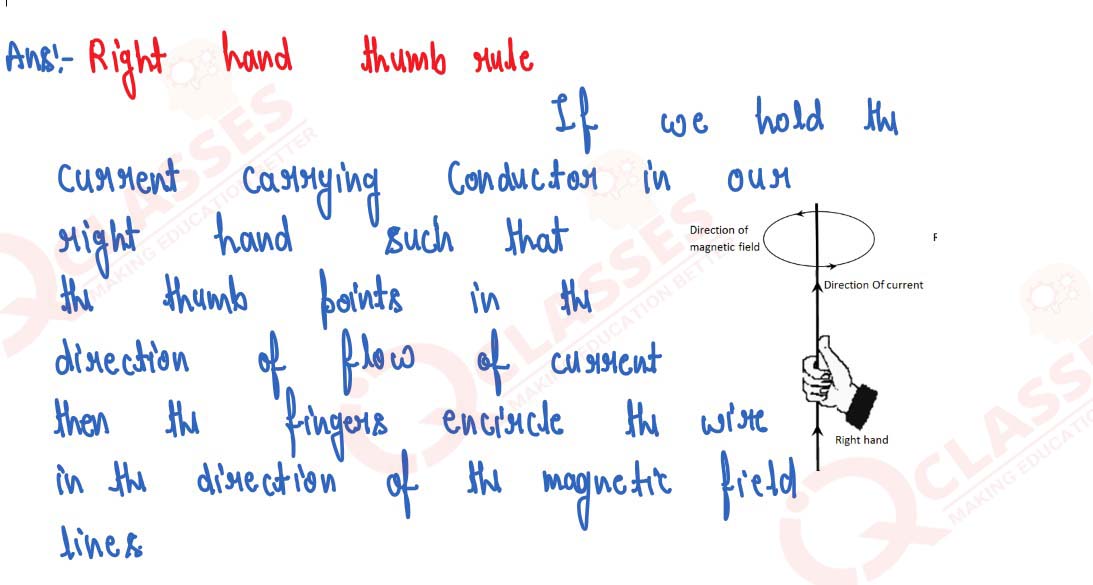 Ans:- Right hand thumb rule
If we hold the
current carrying Conductor in our
right hand such that
the thumb points in the
direction of flow of current
then the fingers encircle the wire
in the direction of the magnetic field
lines
Direction of
magnetic field
F
Direction Of current
Right hand
IQ CLASSES
MAKING EDUCATION BETTER